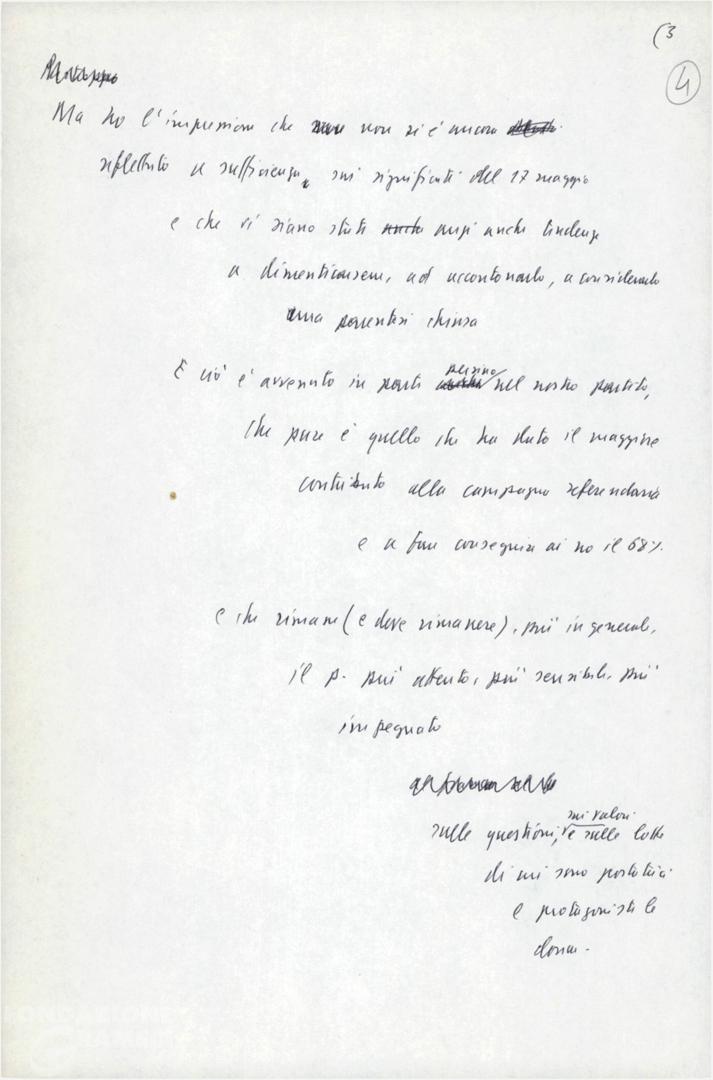 (3
4
Ma ho l'impressione che non si è ancora
riflettuto a sufficienza sui significati del 17 maggio
e che vi siano state anzi anche tendenze
a dimenticarsene, ad accantonarlo, a considerarlo
una parentesi chiusa
E ciò è avvenuto in parte persino nel nostro partito,
che pure è quello che ha dato il maggiore
contributo alla campagna referendaria
e a far conseguire ai no il 68%.
e che rimane (e deve rimanere), più in generale,
il p. più attento, più sensibile, più
impegnato
sulle questioni, sui valori e sulle lotte
di cui sono portatrici
e protagoniste le
donne.
FONDAZIONE
GRAMSCI